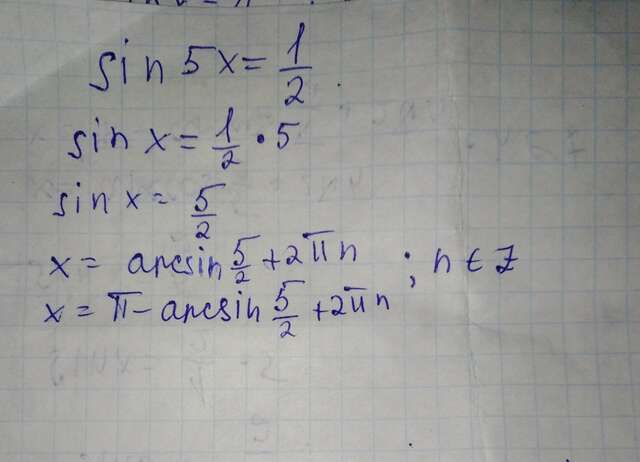 sin 5x = 1/2
sin x = 1/2 · 5
sin x = 5/2
x = arcsin 5/2 + 2πn ; n ∈ Z
x = π - arcsin 5/2 + 2πn